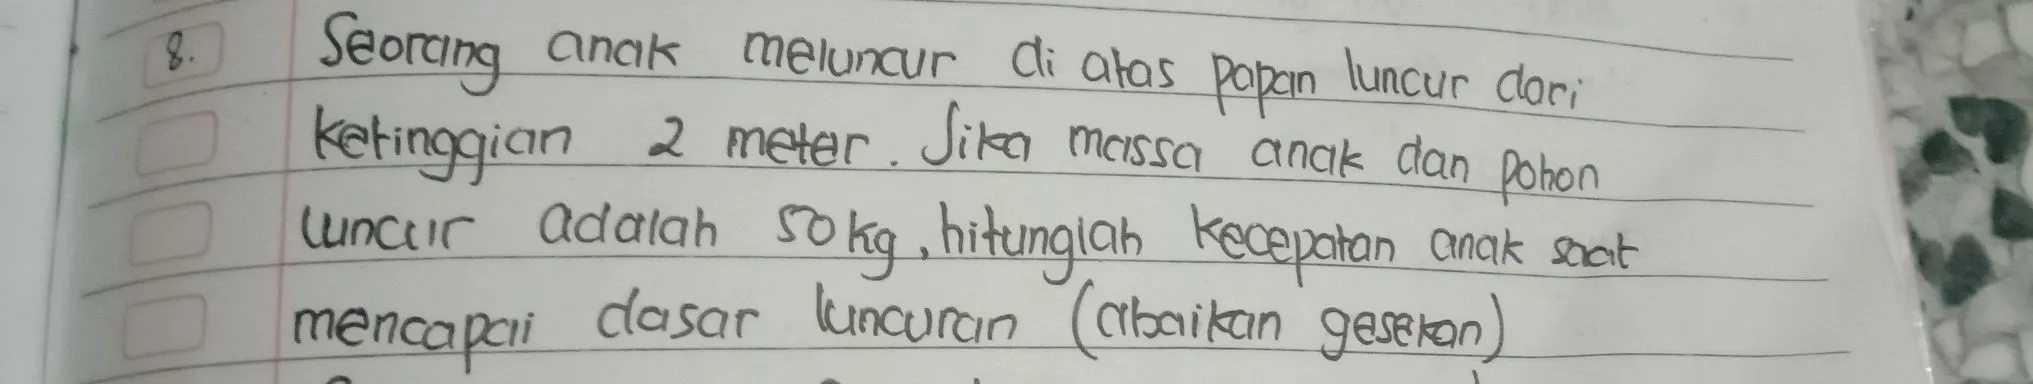 8. Seorang anak meluncur di atas papan luncur dari
ketinggian 2 meter. Jika massa anak dan pohon
luncur adalah 50 kg, hitunglah kecepatan anak saat
mencapai dasar luncuran (abaikan gesekan)